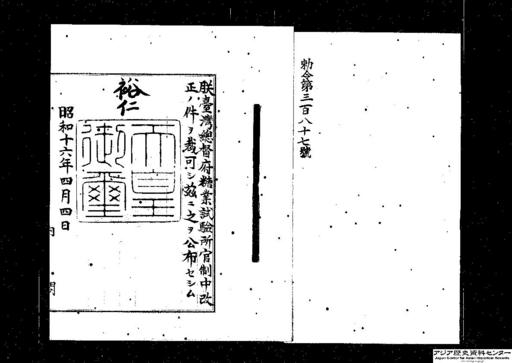 勅令第三百八十七號
朕臺灣總督府糖業試驗所官制中改
正ノ件ヲ裁可シ茲ニ之ヲ公布セシム
裕仁
天皇
御璽
昭和十六年四月四日
内閣
アジア歴史資料センター
Japan Center for Asian Historical Records